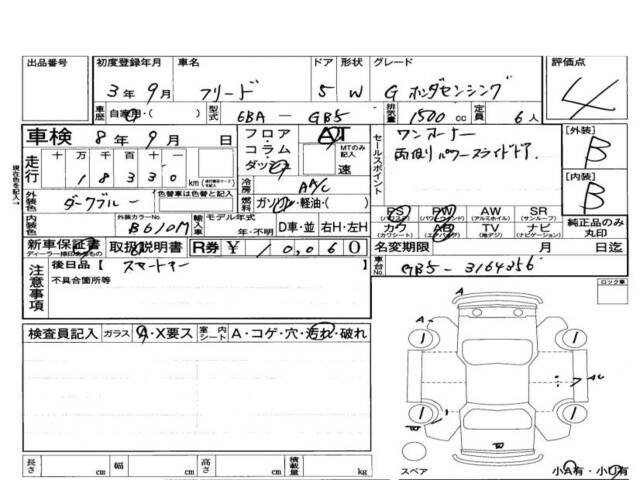 出品番号 初度登録年月 車名 ドア 形状 グレード 評価点
3年9月 フリード 5 W G ホンダセンシング 4
車歴 自家用・( ) 型式 6BA-GB5 排気量 1500cc 定員 6人
車検 8年9月 日 フロア・コラム・ダッシュ AT MTのみ記入 速
セールスポイント ワンオーナー
両側パワースライドドア.
[外装] B
[内装] B
現在色を記入→
走行 十 万 千 百 十 一
18330 km
冷房 AAC
外装色 ダークブルー 色替車は色替と記入
燃料 ガソリン・軽油・( )
内装色 外装カラーNo. B610M 輸入車 モデル年式 年・不明 D車・並 右H・左H
PS (パワステ) PW AW (アルミホイル) SR (サンルーフ)
カワ (カワシート) AB (エアバッグ) TV (地デジ) ナビ (ナビゲーション)
純正品のみ丸印
新車保証書 取扱説明書 R券 ¥10,060
ディーラー捺印あるもの
名変期限 月 日迄
注意事項 後日品【スマートキー 】
不具合箇所等
車台No. GB5-3164356
ロック車
検査員記入 ガラス A・X要ス 室内シート A・コゲ・穴・汚れ・破れ
A
スペア
小A有・小U有
長さ cm 幅 cm 高さ cm 積載量 kg